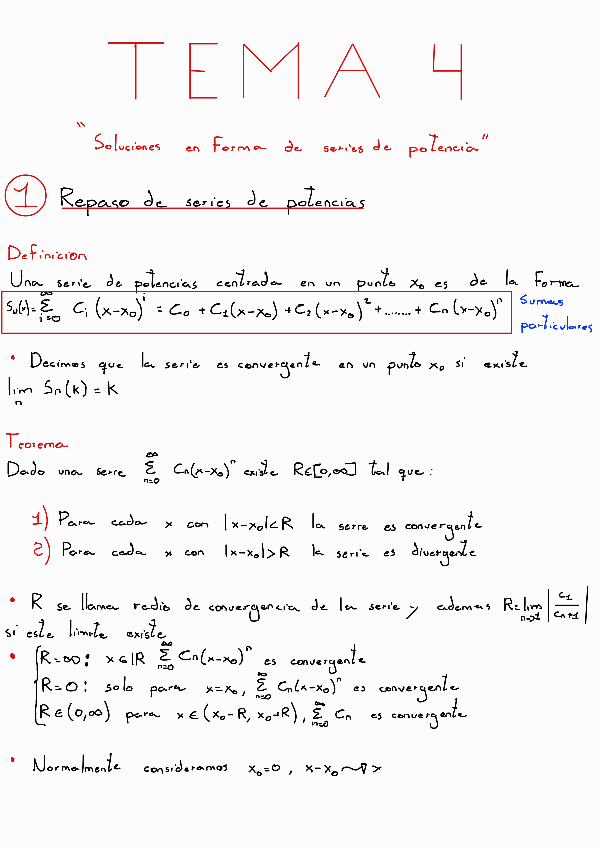 TEMA 4
"Soluciones en Forma de series de potencia"
1 Repaso de series de potencias
Definicion
Una serie de potencias centrada en un punto x₀ es de la Forma
Sₙ(x) = ∑_{i=0}^{∞} Cᵢ (x-x₀)ⁱ = C₀ + C₁(x-x₀) + C₂(x-x₀)² + ........ + Cₙ(x-x₀)ⁿ Sumas
particulares
• Decimos que la serie es convergente en un punto x₀ si existe
lim_n Sₙ(k) = K
Teorema
Dado una serie ∑_{n=0}^{∞} Cₙ(x-x₀)ⁿ existe R∈[0,∞] tal que:
1) Para cada x con |x-x₀|<R la serie es convergente
2) Para cada x con |x-x₀|>R la serie es divergente
• R se llama radio de convergencia de la serie y ademas R=lim_{n→1} |C₁/Cₙ₊₁|
si este límite existe
• R=∞: x∈ℝ ∑_{n=0}^{∞} Cₙ(x-x₀)ⁿ es convergente
R=0: solo para x=x₀, ∑_{n=0}^{∞} Cₙ(x-x₀)ⁿ es convergente
R∈(0,∞) para x∈(x₀-R, x₀+R), ∑_{n=0}^{∞} Cₙ es convergente
• Normalmente consideramos x₀=0, x-x₀ ⇝ x